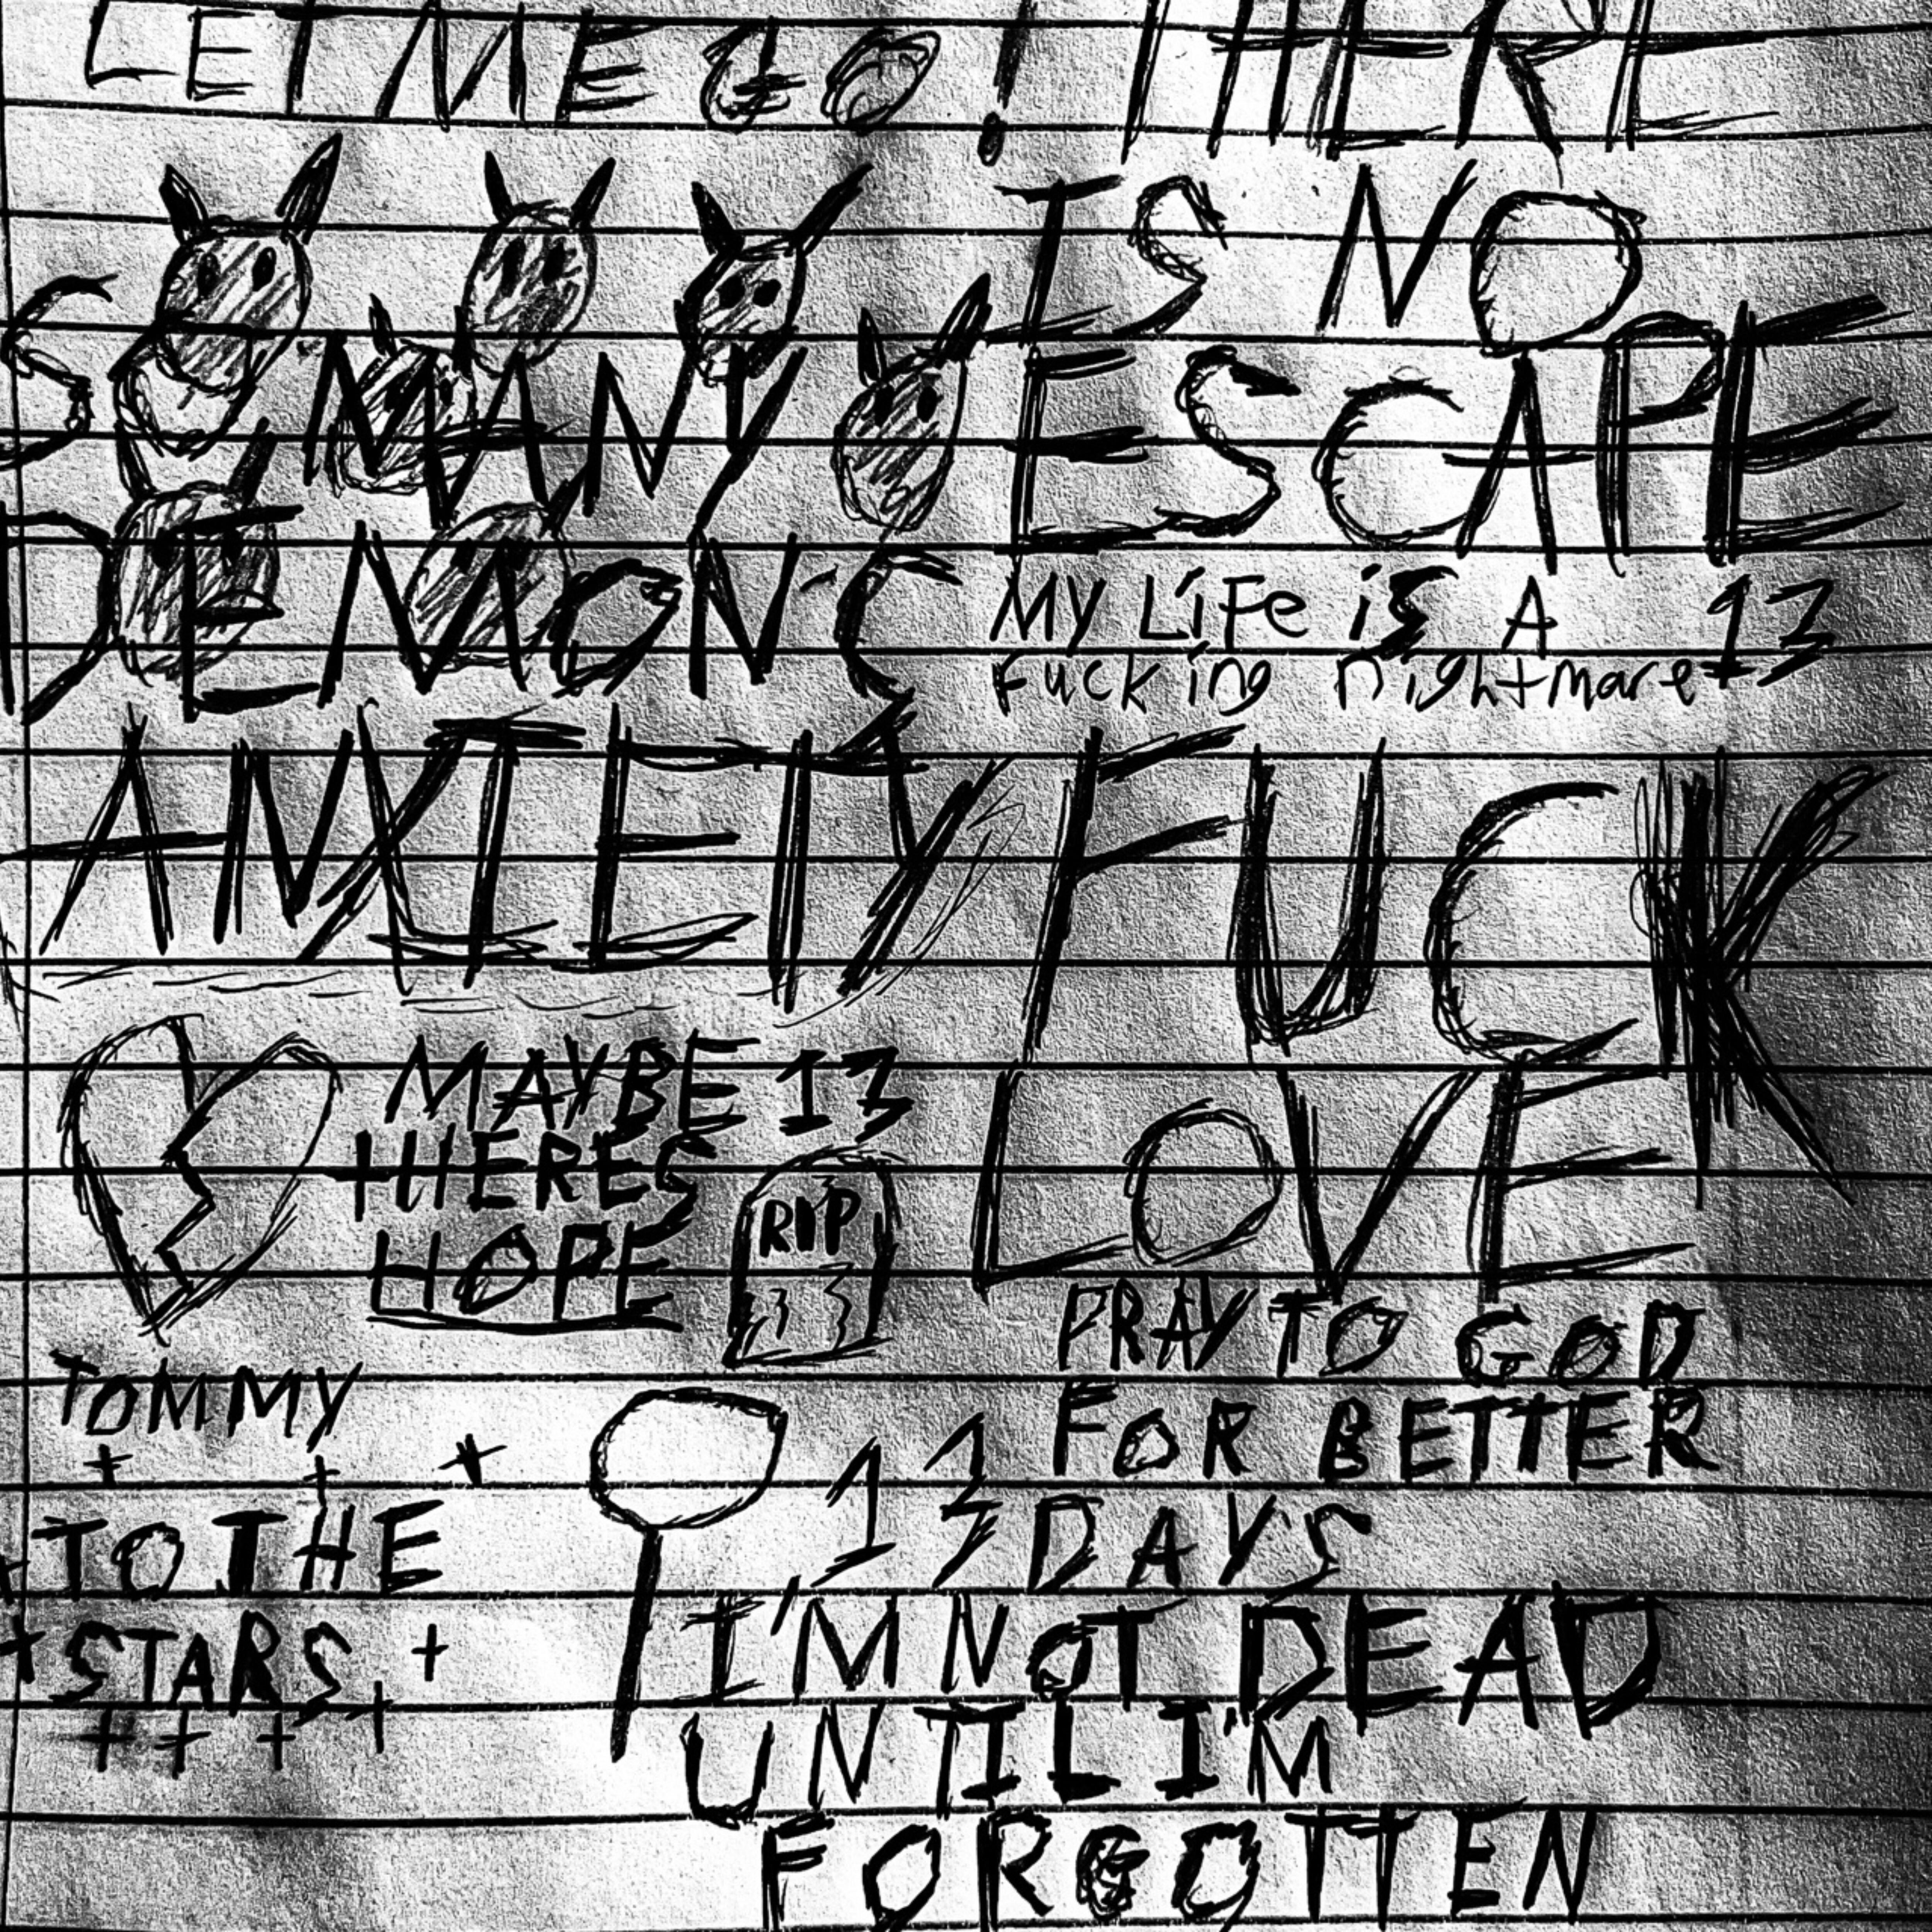 LET ME GO!
SO MANY
DEMONS
ANXIETY
THERE
IS NO
ESCAPE
My LiFe is A
Fucking nightmare
13
FUCK
LOVE
MAYBE
THERES
HOPE
13
RIP
PRAY TO GOD
FOR BETTER
DAYS
13
TOMMY
TO THE
STARS
I'M NOT DEAD
UNTIL I'M
FORGOTTEN